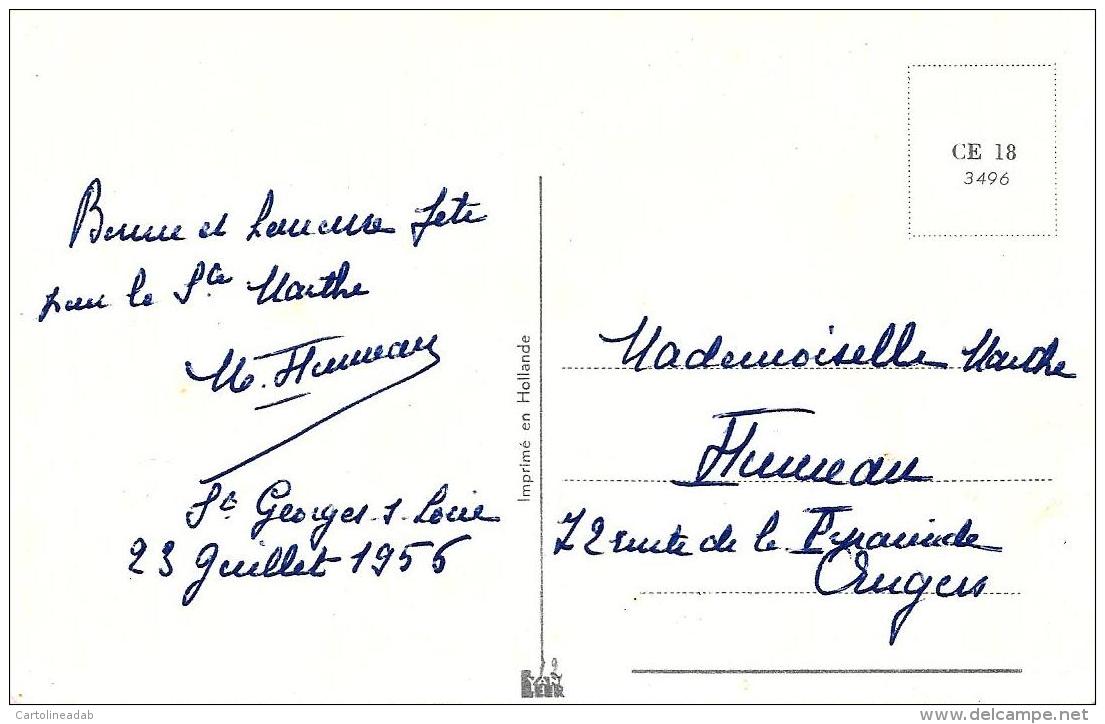 Bonne et heureuse fête
pour la Ste Marthe
M. Humeau
St Georges s. Loire
23 Juillet 1956
Imprimé en Hollande
CE 18
3496
Mademoiselle Marthe
Humeau
72 route de la Pyramide
Angers
VAN
LEER
Cartolineadab
delcampe.net